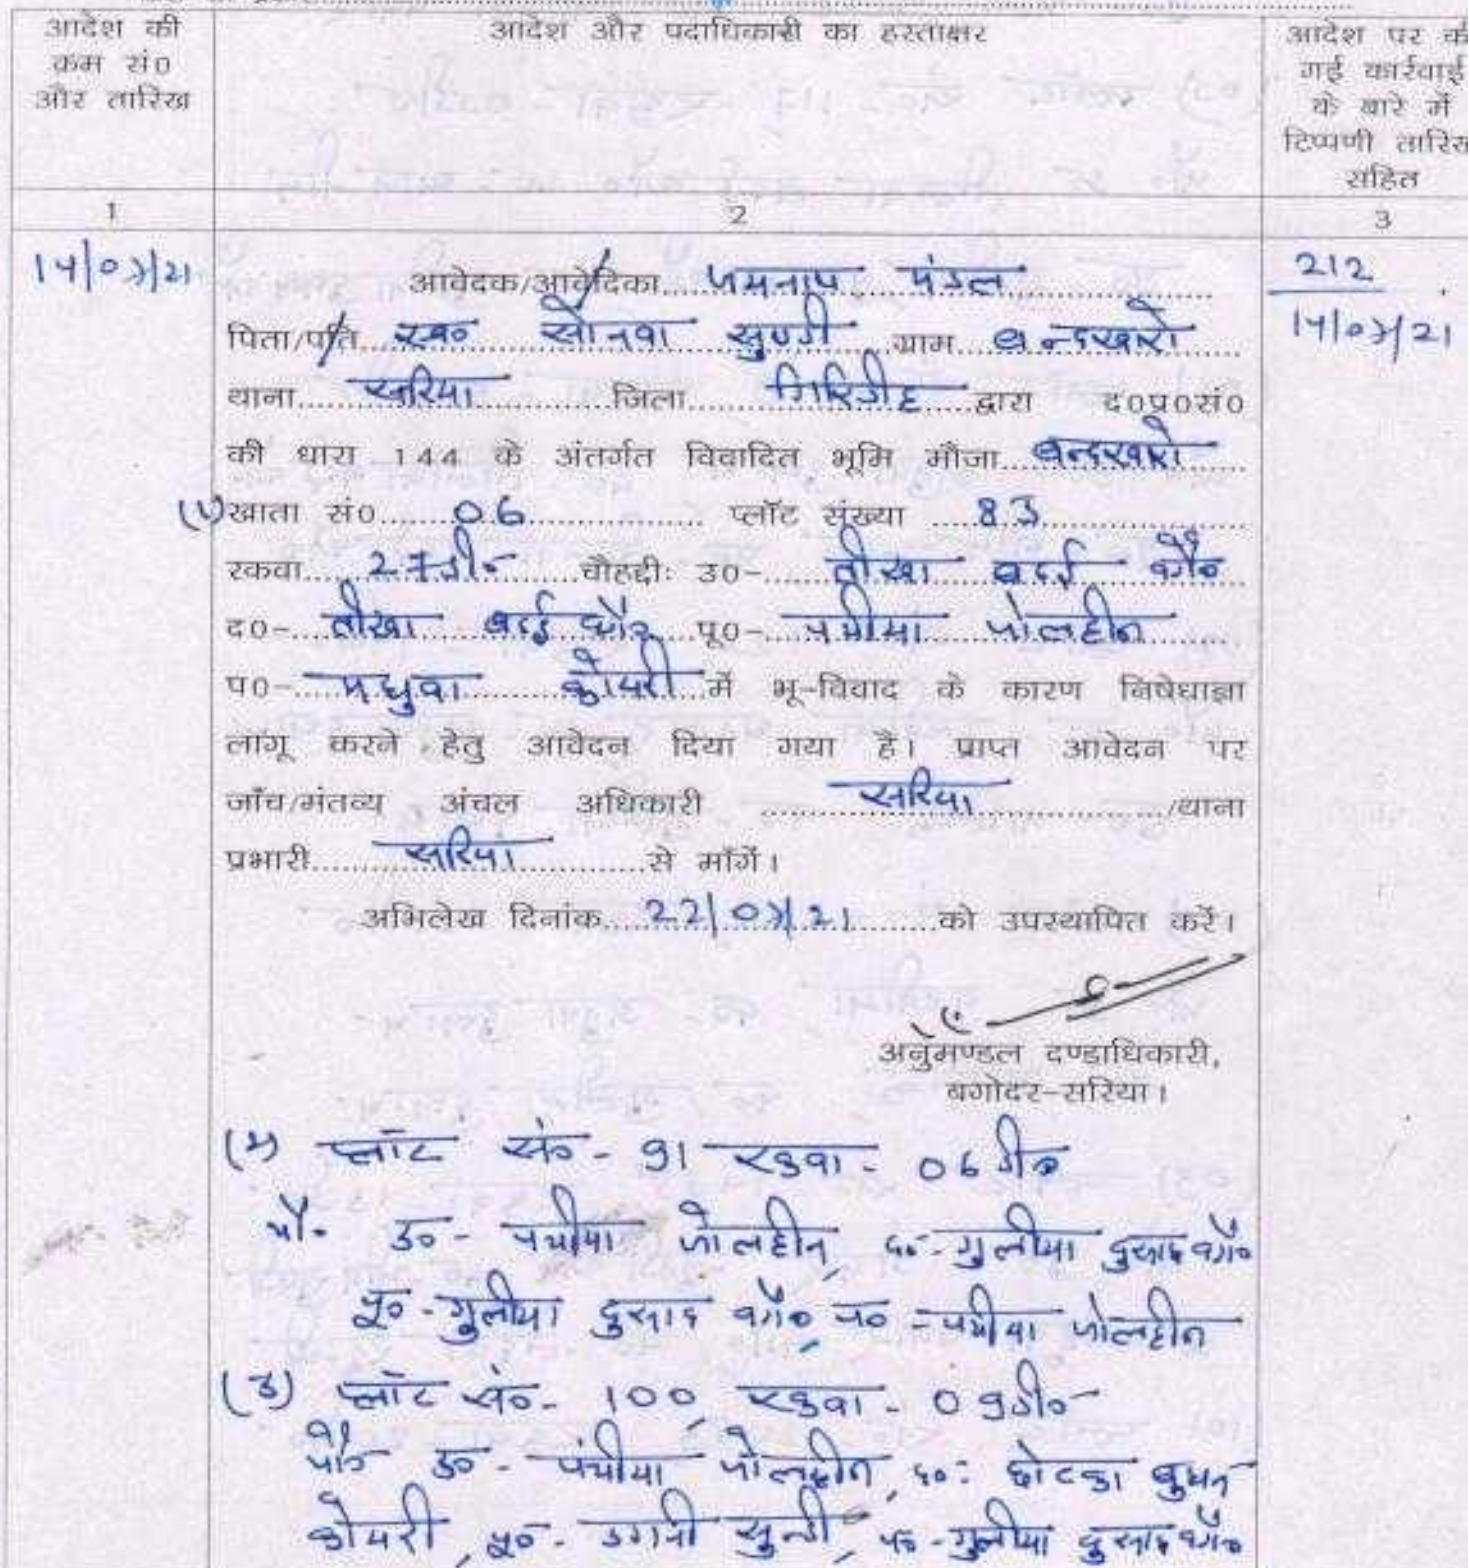 आदेश की
क्रम सं0
और तारिख
आदेश और पदाधिकारी का हस्ताक्षर
आदेश पर की
गई कार्रवाई
के बारे में
टिप्पणी तारिख
सहित
1
2
3
14/07/21
212
14/07/21
आवेदक/आवेदिका.....मंडल
पिता/पति.....स्व० सोनवा सुण्डी.....ग्राम.....बन्दखारो
थाना.....सरिया.....जिला.....गिरिडीह.....द्वारा द0प्र0सं0
की धारा 144 के अंतर्गत विवादित भूमि मौजा.....बन्दखारो
(1) खाता सं0.....06..... प्लॉट संख्या.....83.....
रकवा.....27डी०.....चौहद्दीः उ0-.....तीखा बढई वगै०
द0-.....तीखा बढई वगै० पू0-.....जोलहीन.....
प0-.....मधुवा कोयरी.....में भू-विवाद के कारण निषेधाज्ञा
लागू करने हेतु आवेदन दिया गया है। प्राप्त आवेदन पर
जाँच/मंतव्य अंचल अधिकारी .....सरिया...../थाना
प्रभारी.....सरिया.....से माँगें।
अभिलेख दिनांक.....22/07/21.....को उपस्थापित करें।
अनुमण्डल दण्डाधिकारी,
बगोदर-सरिया।
(2) प्लॉट सं०- 91 रकवा- 06 डी०
चौ० उ०- जोलहीन, द०- गुलीया दुसाध वगै०
पू०- गुलीया दुसाध वगै०, प०- जोलहीन
(3) प्लॉट सं०- 100, रकवा- 09डी०
चौ० उ०- जोलहीन, द०- छोटका बुधन
कोयरी, पू०- सुन्डी, प०- गुलीया दुसाध वगै०